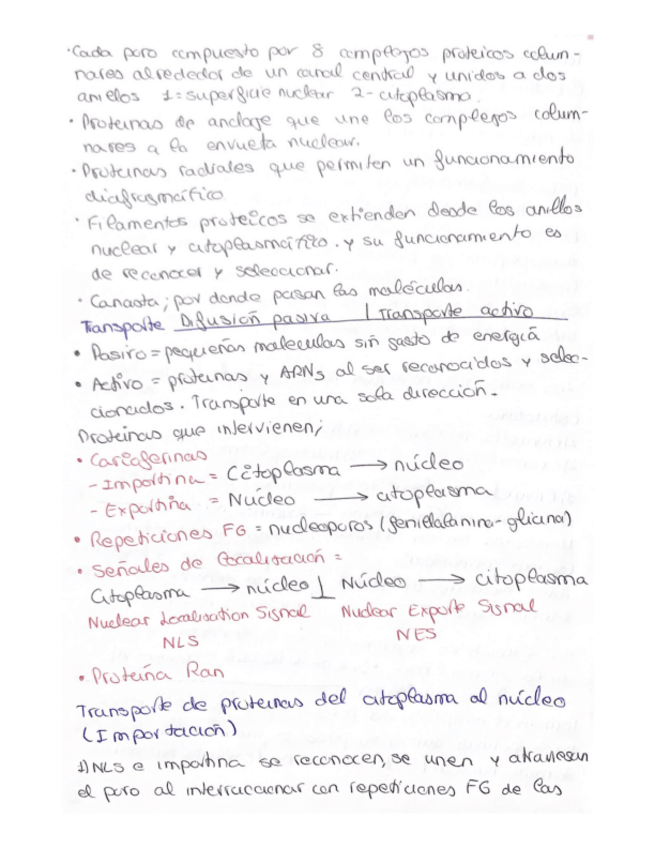 · Cada poro compuesto por 8 complejos proteicos colum-
nares alrededor de un canal central y unidos a dos
anillos 1 = superficie nuclear 2 - citoplasma.
· Proteínas de anclaje que une los complejos colum-
nares a la envuelta nuclear.
· Proteínas radiales que permiten un funcionamiento
diafragmático
· Filamentos proteicos se extienden desde los anillos
nuclear y citoplasmático. y su funcionamiento es
de reconocer y seleccionar.
· Canasta; por donde pasan las moléculas.
Transporte Difusión pasiva | Transporte activo
• Pasivo = pequeñas moleculas sin gasto de energía
• Activo = proteínas y ARNs al ser reconocidos y selec-
cionados. Transporte en una sola dirección.
Proteínas que intervienen;
• Carioferinas
- Importina = Citoplasma → núcleo
- Exportina = Núcleo → citoplasma
• Repeticiones FG = nucleoporos (fenilalanina-glicina)
• Señales de localización =
Citoplasma → núcleo | Núcleo → citoplasma
Nuclear Localisation Signal Nuclear Export Signal
NLS NES
• Proteína Ran
Transporte de proteínas del citoplasma al núcleo
(Importación)
1) NLS e importina se reconocen, se unen y atraviesan
el poro al interraccionar con repeticiones FG de las